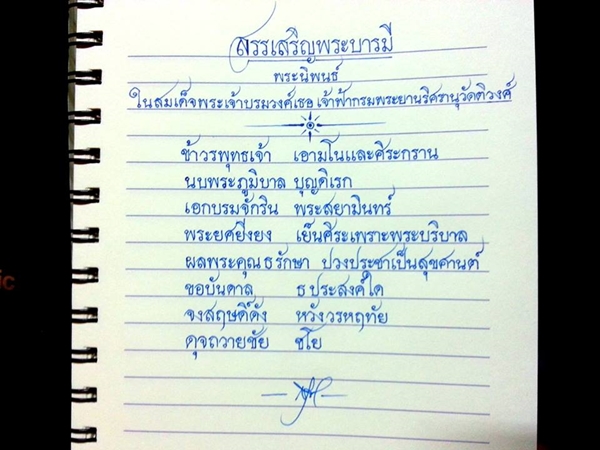 สรรเสริญพระบารมี
พระนิพนธ์
ในสมเด็จพระเจ้าบรมวงศ์เธอ เจ้าฟ้ากรมพระยานริศรานุวัดติวงศ์
ข้าวรพุทธเจ้า เอามโนและศิระกราน
นบพระภูมิบาล บุญดิเรก
เอกบรมจักริน พระสยามินทร์
พระยศยิ่งยง เย็นศิระเพราะพระบริบาล
ผลพระคุณธรักษา ปวงประชาเป็นสุขศานต์
ขอบันดาล ธ ประสงค์ใด
จงสฤษดิ์ดัง หวังวรหฤทัย
ดุจถวายชัย ชโย